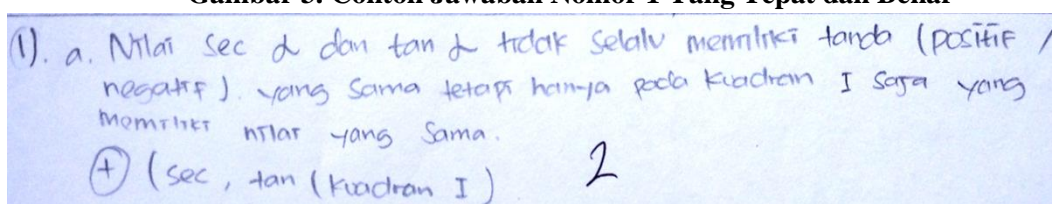 Gambar 3. Contoh Jawaban Nomor 1 Yang Tepat dan Benar
(1). a. Nilai sec α dan tan α tidak selalu memiliki tanda (positif /
negatif). yang sama tetapi hanya pada kuadran I saja yang
memiliki nilai yang sama.
(+) (sec, tan (kuadran I)
2